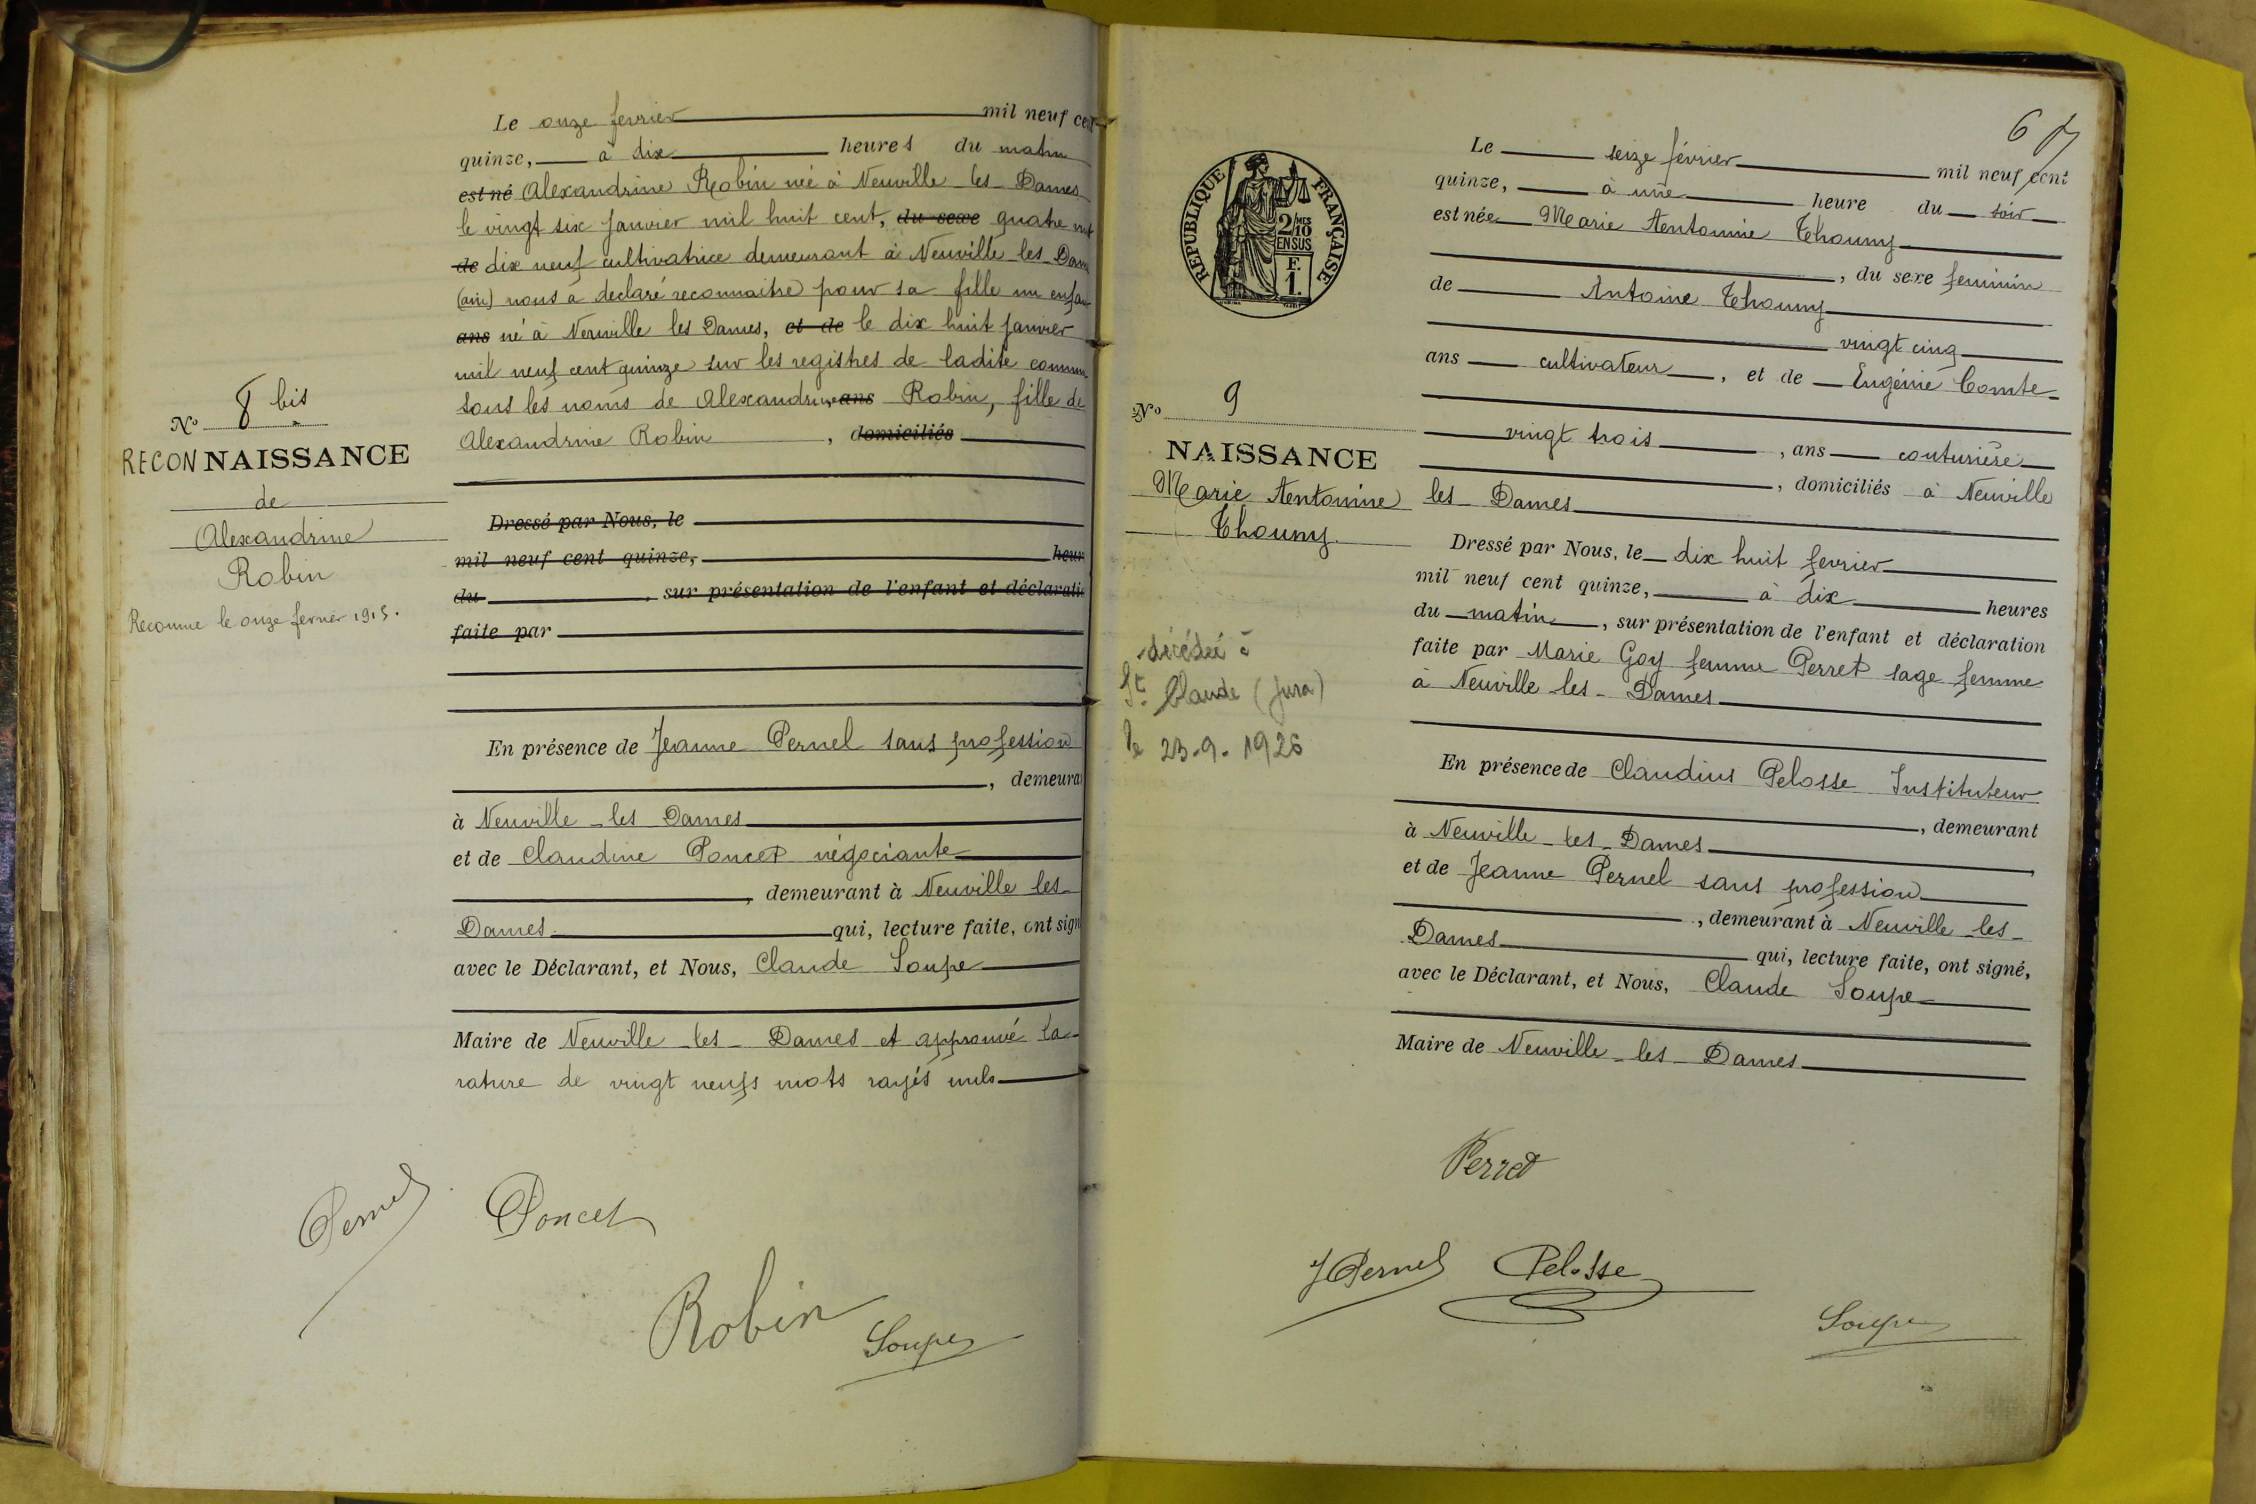 Le onze fevrier mil neuf cent
quinze, à dix heures du matin
est né Alexandrine Robin né à Neuville les Dames
le vingt six Janvier mil huit cent, du sexe quatre vint
de dix neuf cultivatrice demeurant à Neuville les Dames
(ain) nous a declaré reconnaitre pour sa fille un enfan
ans né à Neuville les Dames, et de le dix huit Janvier
mil neuf cent quinze sur les registres de ladite commun
sous les noms de Alexandrine ans Robin, fille de
Alexandrine Robin , domiciliés
Nº 8 bis
RECONNAISSANCE
de
Alexandrine
Robin
Reconnue le onze fevrier 1915.
Dressé par Nous, le
mil neuf cent quinze, heur
du , sur présentation de l'enfant et déclarati
faite par
En présence de Jeanne Pernel sans profession
, demeura
à Neuville les Dames
et de Claudine Poncet négociante
, demeurant à Neuville les
Dames qui, lecture faite, ont sign
avec le Déclarant, et Nous, Claude Soupe
Maire de Neuville les Dames et approuvé la
rature de vingt neufs mots rayés nuls
Pernel Poncet
Robin Soupe
6
RÉPUBLIQUE FRANÇAISE
2/10 MES
EN SUS
F.
1.
Le seize février mil neuf cent
quinze, à une heure du soir
est née Marie Antonine Thouny
, du sexe feminin
de Antoine Thouny
vingt cinq
ans cultivateur , et de Eugénie Comte
vingt trois , ans couturière
, domiciliés à Neuville
les Dames
Nº 9
NAISSANCE
Marie Antonine
Thouny
décédée à
St. Claude (Jura)
le 23-9-1926
Dressé par Nous, le dix huit fevrier
mil neuf cent quinze, à dix heures
du matin , sur présentation de l'enfant et déclaration
faite par Marie Goy femme Perret sage femme
à Neuville les Dames
En présence de Claudius Pelosse Instituteur
, demeurant
à Neuville les Dames
et de Jeanne Pernel sans profession
, demeurant à Neuville les
Dames qui, lecture faite, ont signé,
avec le Déclarant, et Nous, Claude Soupe
Maire de Neuville les Dames
Perret
J Pernel Pelosse
Soupe